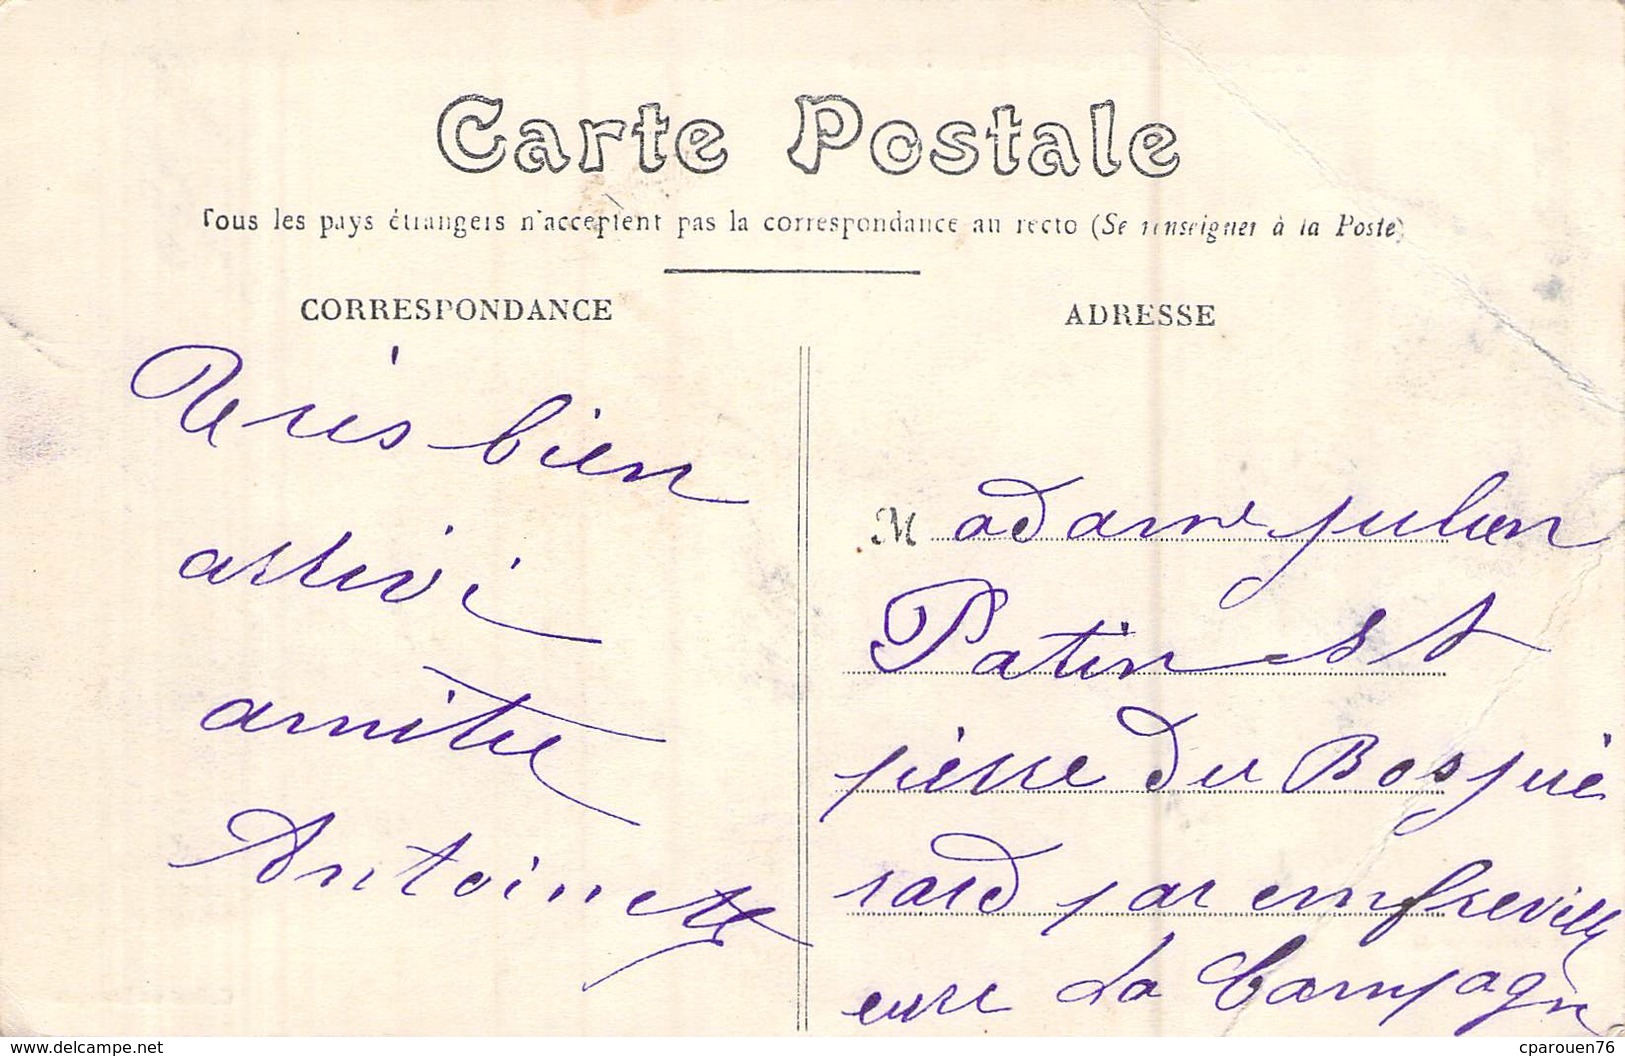 Carte Postale
Tous les pays étrangers n'acceptent pas la correspondance au recto (Se renseigner à la Poste)
CORRESPONDANCE
ADRESSE
très bien
arrivé
amitié
Antoinette
Madame julien
Patin st
pierre du Bosgué
rard par emfreville
eure La Campagne
delcampe.net
cparouen76